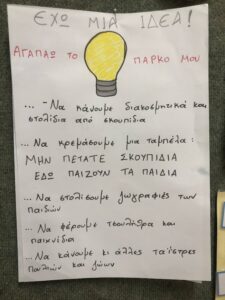 ΕΧΩ ΜΙΑ ΙΔΕΑ!
ΑΓΑΠΑΩ ΤΟ ΠΑΡΚΟ ΜΟΥ
... Να κάνουμε διακοσμητικά και
στολίδια από σκουπίδια
... Να κρεμάσουμε μια ταμπέλα:
ΜΗΝ ΠΕΤΑΤΕ ΣΚΟΥΠΙΔΙΑ
ΕΔΩ ΠΑΙΖΟΥΝ ΤΑ ΠΑΙΔΙΑ
... Να στολίσουμε ζωγραφιές των
παιδιών
... Να φέρουμε τσουλήθρα και
παιχνίδια
... Να κάνουμε κι άλλες ταΐστρες
πουλιών και ζώων